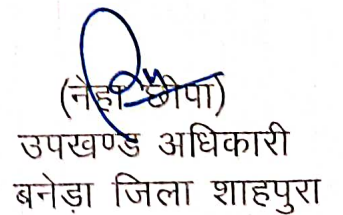 (नेहा छीपा)
उपखण्ड अधिकारी
बनेड़ा जिला शाहपुरा